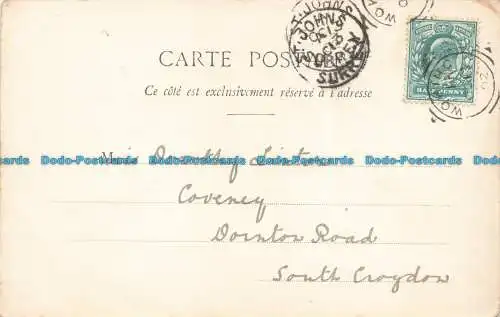 CARTE POSTALE
Ce côté est exclusivement réservé à l'adresse
ST. JOHNS
SURREY
HALFPENNY
Dodo-Postcards Dodo-Postcards Dodo-Postcards Dodo-Postcards Dodo-Postcards
Miss Dorothy
Coveney
Dornton Road
South Croydon